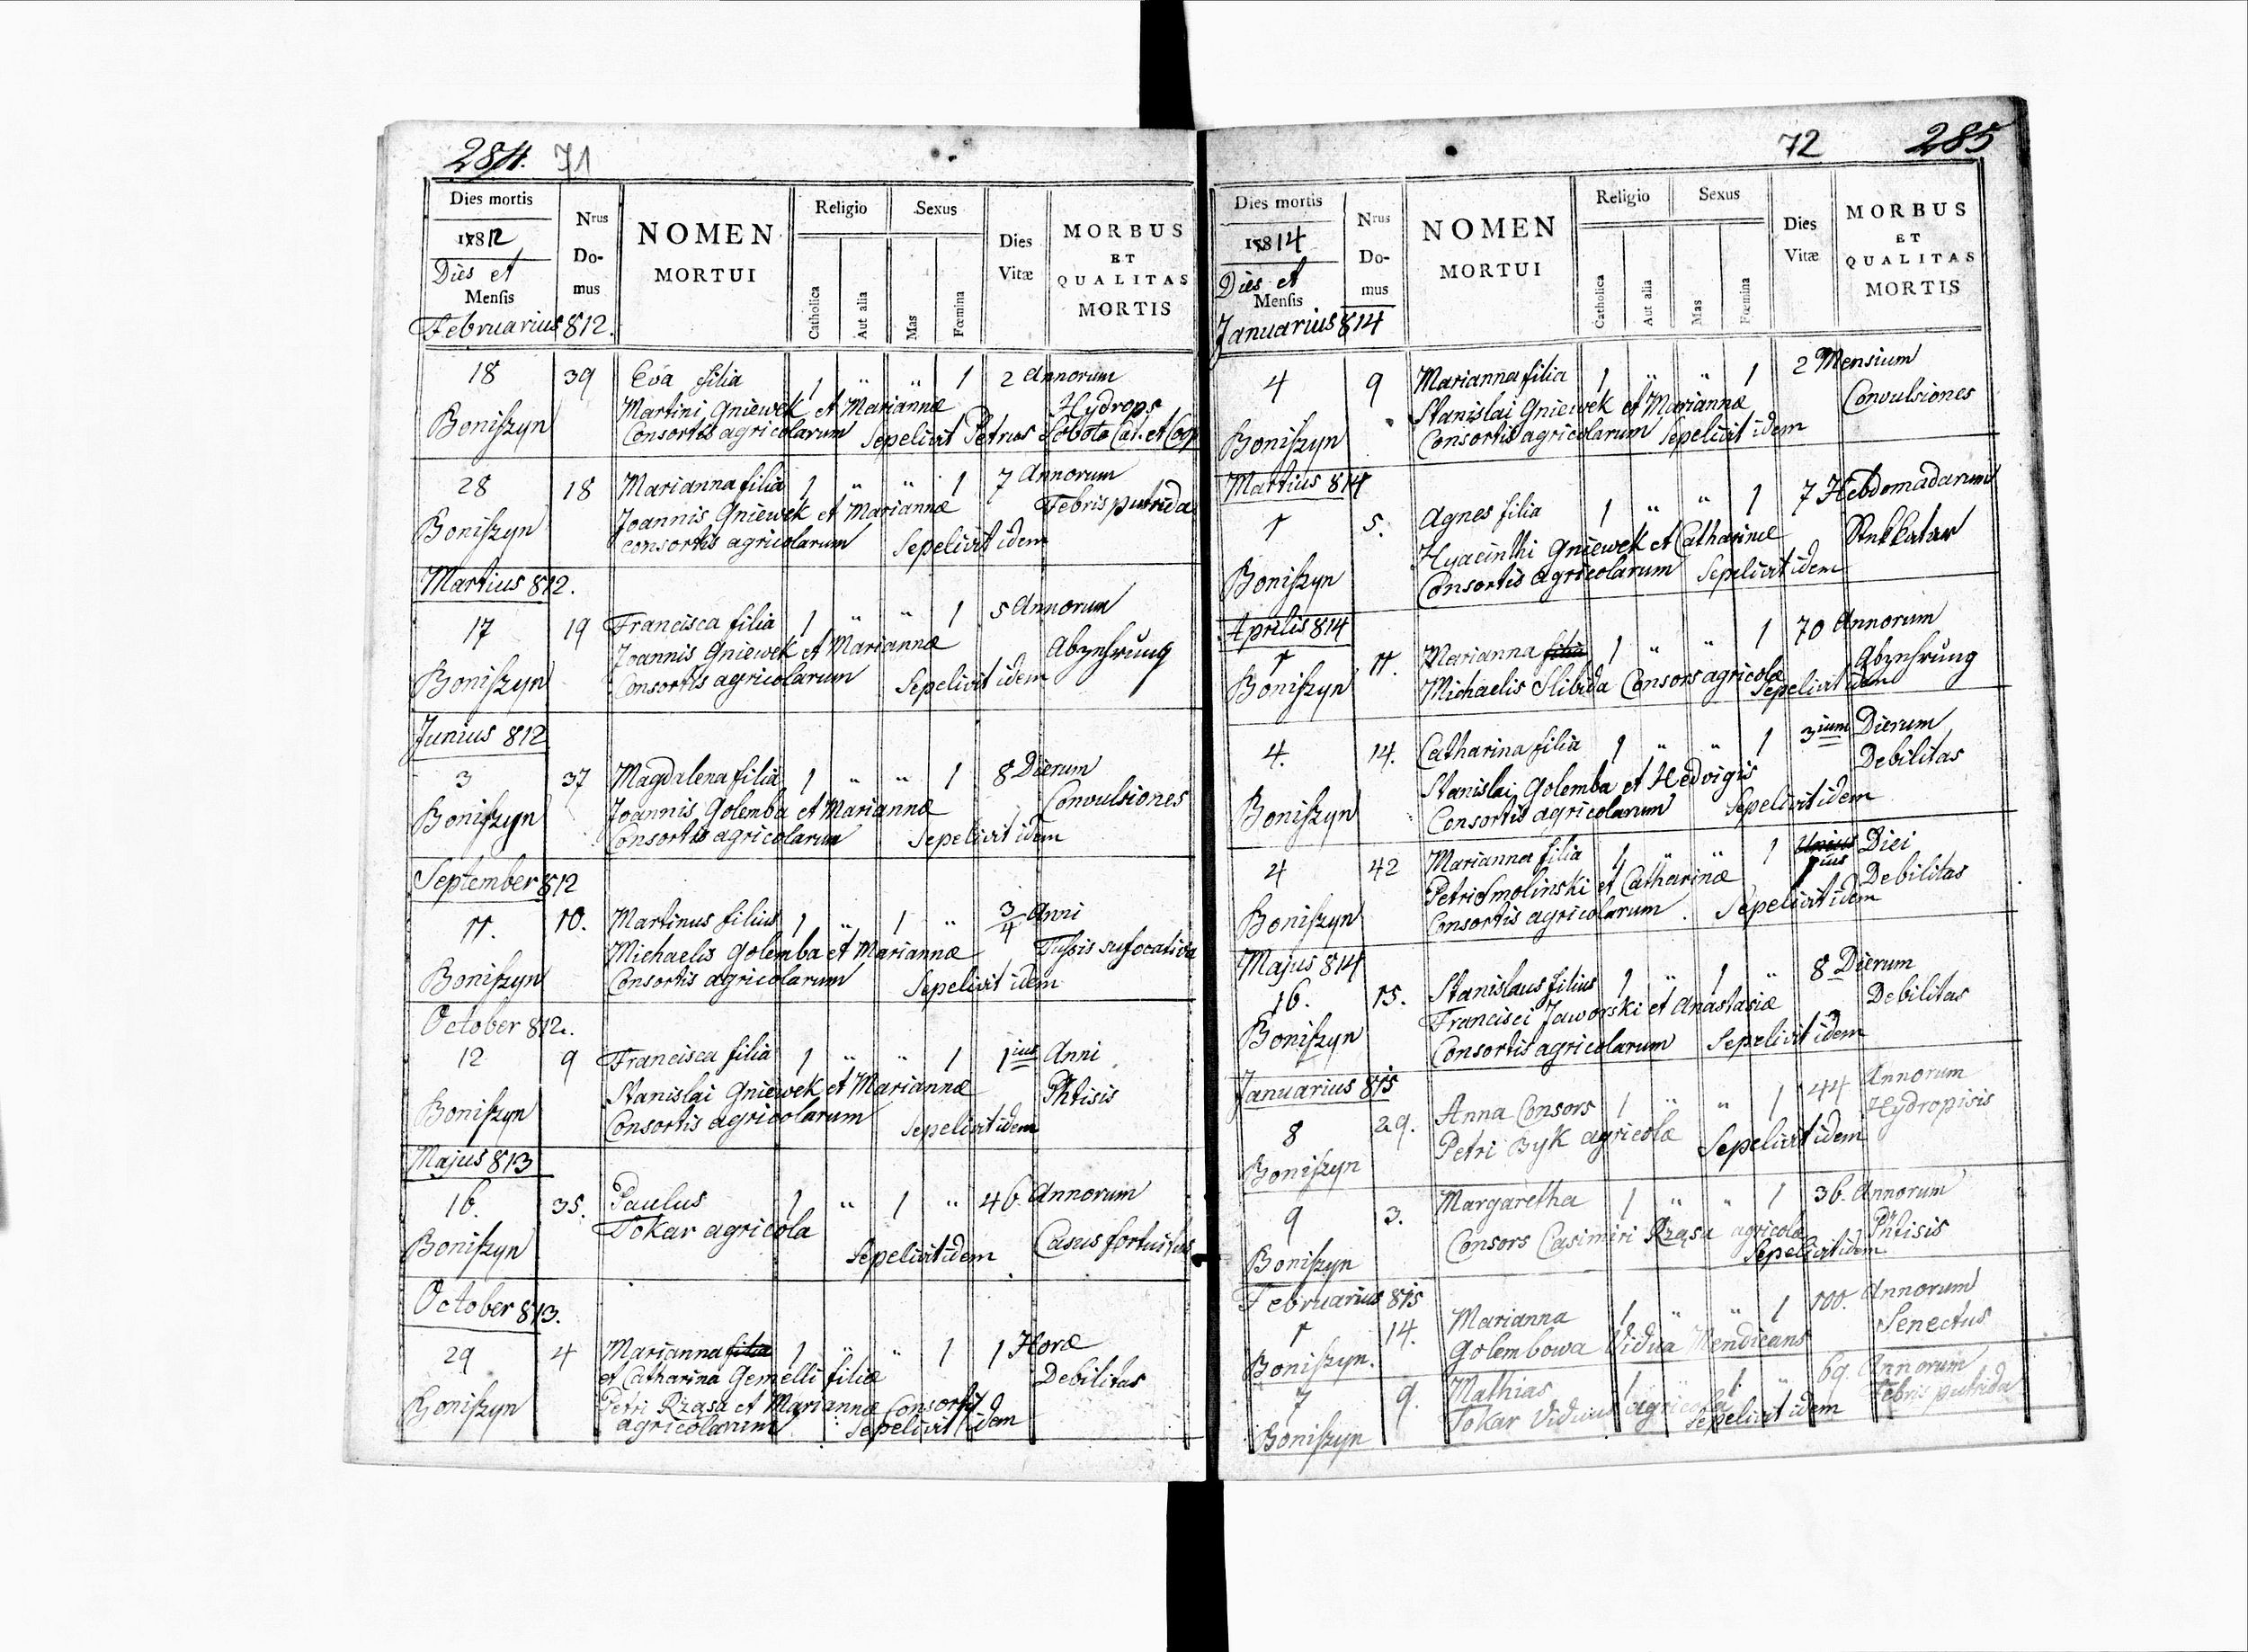 284. 71
Dies mortis
Nrus Domus
NOMEN MORTUI
Religio
Catholica
Aut alia
Sexus
Mas
Fœmina
Dies Vitæ
MORBUS ET QUALITAS MORTIS
1812
Dies et
Mensis
Februarius 812.
18 39 Eva filia 1 " " 1 2 Annorum
Martini Gniewek et Mariannæ Hydrops
Boniſzyn Consortis agricolarum Sepelivit Petrus Sobota Cal. et Coop
28 18 Marianna filia 1 " " 1 7 Annorum
Joannis Gniewek et Mariannæ Febris putrida
Boniſzyn consortis agricolarum Sepelivit idem
Martius 812.
17 19 Francisca filia 1 " " 1 5 Annorum
Joannis Gniewek et Mariannæ Abzehrung
Boniſzyn Consortis agricolarum Sepelivit idem
Junius 812
3 37 Magdalena filia 1 " " 1 8 Dierum
Boniſzyn Joannis Golemba et Mariannæ Convulsiones
Consortis agricolarum Sepelivit idem
September 812
11. 10. Martinus filius 1 " 1 " 3/4 Anni
Michaelis Golemba et Mariannæ Tuſsis sufocativa
Boniſzyn Consortis agricolarum Sepelivit idem
October 812.
12 9 Francisca filia 1 " " 1 1ius Anni
Stanislai Gniewek et Mariannæ Phtisis
Boniſzyn Consortis agricolarum Sepelivit idem
Majus 813
16. 35. Paulus 1 " 1 " 46 Annorum
Tokar agricola
Boniſzyn Sepelivit idem Casus fortuitus
October 813.
29 4 Marianna filia 1 " " 1 1 Horæ
et Catharina Gemelli filiæ Debilitas
Boniſzyn Petri Rząsa et Mariannæ Consortis
agricolarum Sepelivit idem
72 285
Dies mortis
Nrus Domus
NOMEN MORTUI
Religio
Catholica
Aut alia
Sexus
Mas
Fœmina
Dies Vitæ
MORBUS ET QUALITAS MORTIS
1814
Dies et
Mensis
Januarius 814
4 9 Marianna filia 1 " " 1 2 Mensium
Stanislai Gniewek et Mariannæ Convulsiones
Boniſzyn Consortis agricolarum Sepelivit idem
Martius 814
1 5. Agnes filia 1 " " 1 7 Hebdomadarum
Hyacinthi Gniewek et Catharinæ
Boniſzyn Consortis agricolarum Sepelivit idem
Aprilis 814
1 11. Marianna filia 1 " " 1 70 Annorum
Boniſzyn Michaelis Slibida Consors agricolæ Abzehrung
Sepelivit idem
4. 14. Catharina filia 1 " " 1 3ium Dierum
Stanislai Golemba et Hedvigis Debilitas
Boniſzyn Consortis agricolarum Sepelivit idem
4 42 Marianna filia 1 " " 1 Unius 1ius Diei
Petri Smolinski et Catharinæ Debilitas
Boniſzyn Consortis agricolarum. Sepelivit idem
Majus 814
16. 15. Stanislaus filius 1 " 1 " 8 Dierum
Francisci Jaworski et Anastasiæ Debilitas
Boniſzyn Consortis agricolarum Sepelivit idem
Januarius 815
8 29. Anna Consors 1 " " 1 44 Annorum
Petri Byk agricolæ Hydropisis
Boniſzyn Sepelivit idem
9 3. Margaretha 1 " " 1 36. Annorum
Consors Casimiri Rząsa agricolæ Phtisis
Boniſzyn Sepelivit idem
Februarius 815
1 14. Marianna 1 " " 1 100. Annorum
Boniſzyn. Golembowa Vidua Mendicans Senectus
7 9. Mathias 1 " 1 " 69. Annorum
Tokar Viduus agricola Febris putrida
Boniſzyn Sepelivit idem